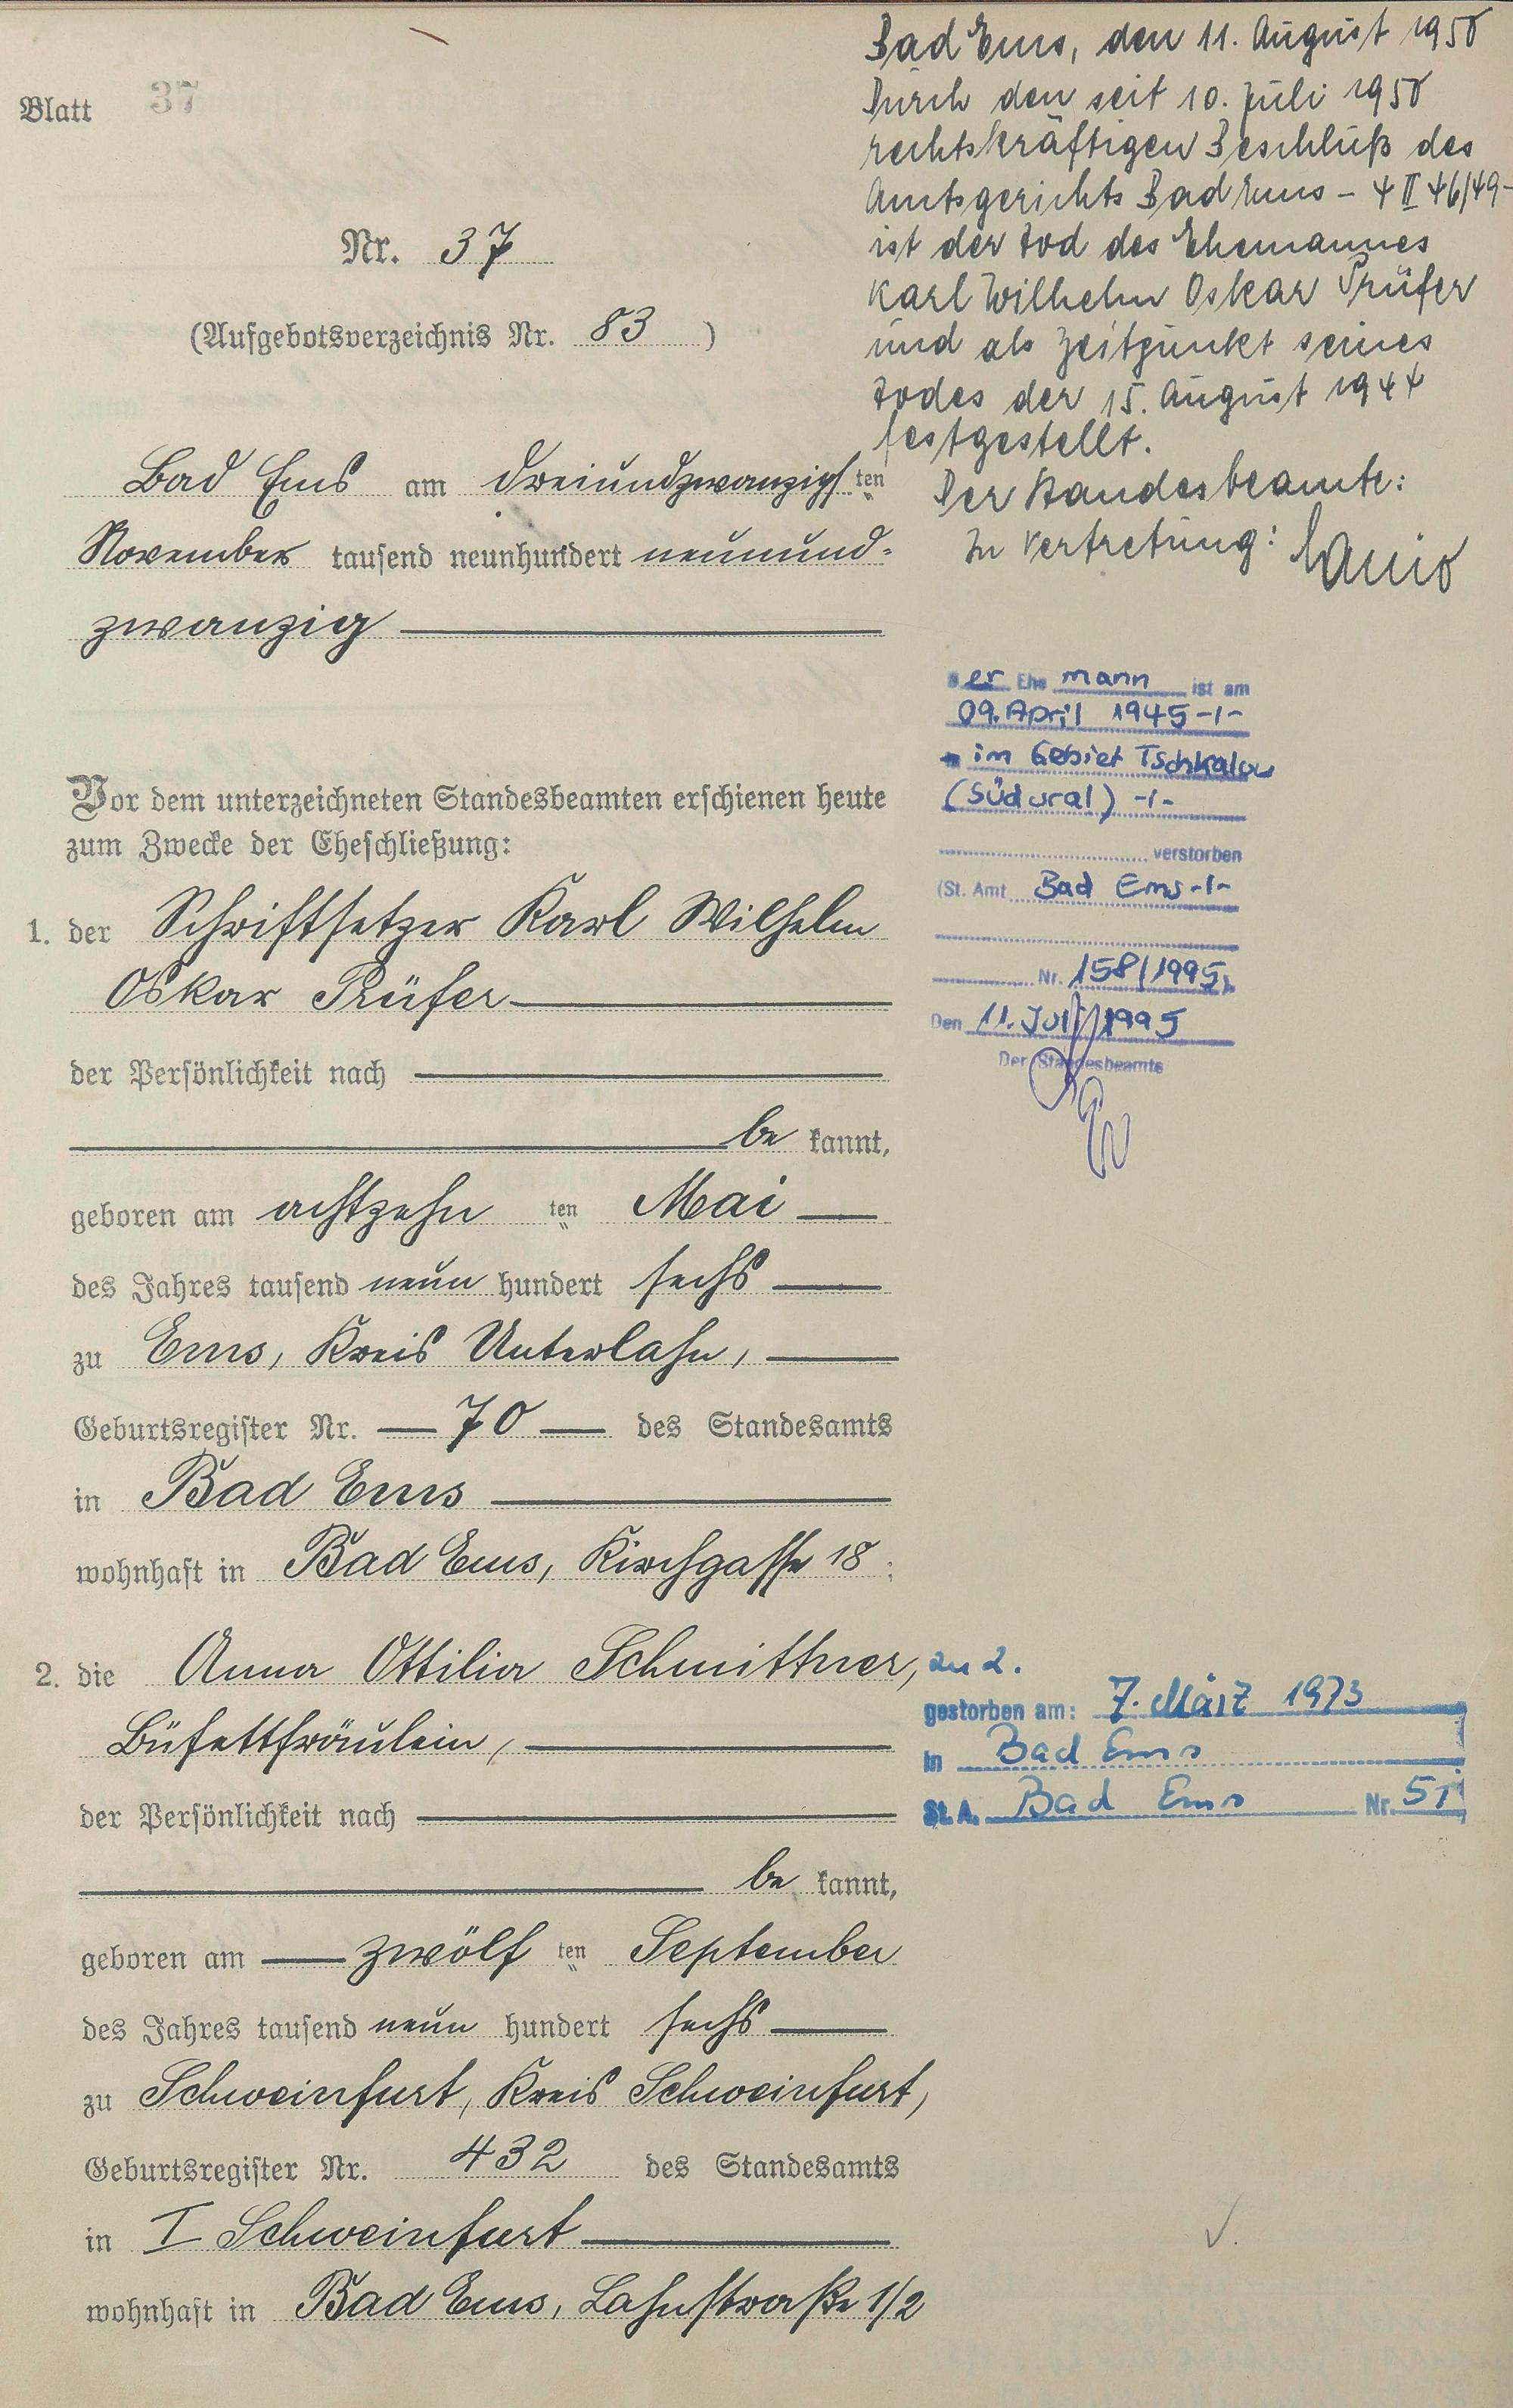 Blatt 37
Nr. 37
(Aufgebotsverzeichnis Nr. 83 )
Bad Ems am dreiundzwanzigsten
November tausend neunhundert neunund-
zwanzig
Vor dem unterzeichneten Standesbeamten erschienen heute
zum Zwecke der Eheschließung:
1. der Schriftsetzer Karl Wilhelm
Oskar Prüfer
der Persönlichkeit nach
be kannt,
geboren am achtzehn ten Mai
des Jahres tausend neun hundert sechs
zu Ems, Kreis Unterlahn,
Geburtsregister Nr. 70 des Standesamts
in Bad Ems
wohnhaft in Bad Ems, Kirchgasse 18;
2. die Anna Ottilia Schmittner,
Büfettfräulein,
der Persönlichkeit nach
be kannt,
geboren am zwölf ten September
des Jahres tausend neun hundert sechs
zu Schweinfurt, Kreis Schweinfurt,
Geburtsregister Nr. 432 des Standesamts
in I Schweinfurt
wohnhaft in Bad Ems, Lahnstraße 1/2
Bad Ems, den 11. August 1950
Durch den seit 10. Juli 1950
rechtskräftigen Beschluß des
Amtsgerichts Bad Ems - 4 II 46/49 -
ist der Tod des Ehemannes
Karl Wilhelm Oskar Prüfer
und als Zeitpunkt seines
Todes der 15. August 1944
festgestellt.
Der Standesbeamte:
In Vertretung:
Der Ehe mann ist am
09. April 1945 -/-
im Gebiet Tschkalow
(Südural) -/-
verstorben
(St. Amt Bad Ems -/-
Nr. 158/1995)
Den 11. Juli 1995
Der Standesbeamte
zu 2.
gestorben am: 7. März 1973
in Bad Ems
St. A. Bad Ems Nr. 51